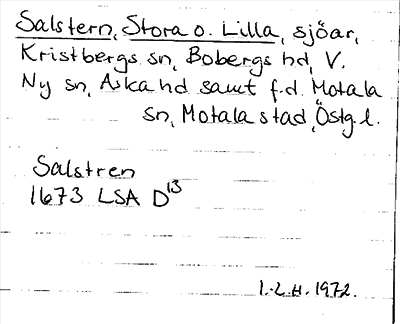 Salstern, Stora o. Lilla, sjöar,
Kristbergs sn, Bobergs hd, V.
Ny sn, Aska hd samt f.d. Motala
sn, Motala stad, Östg.l.
Salstren
1673 LSA D13
I.L.H. 1972.